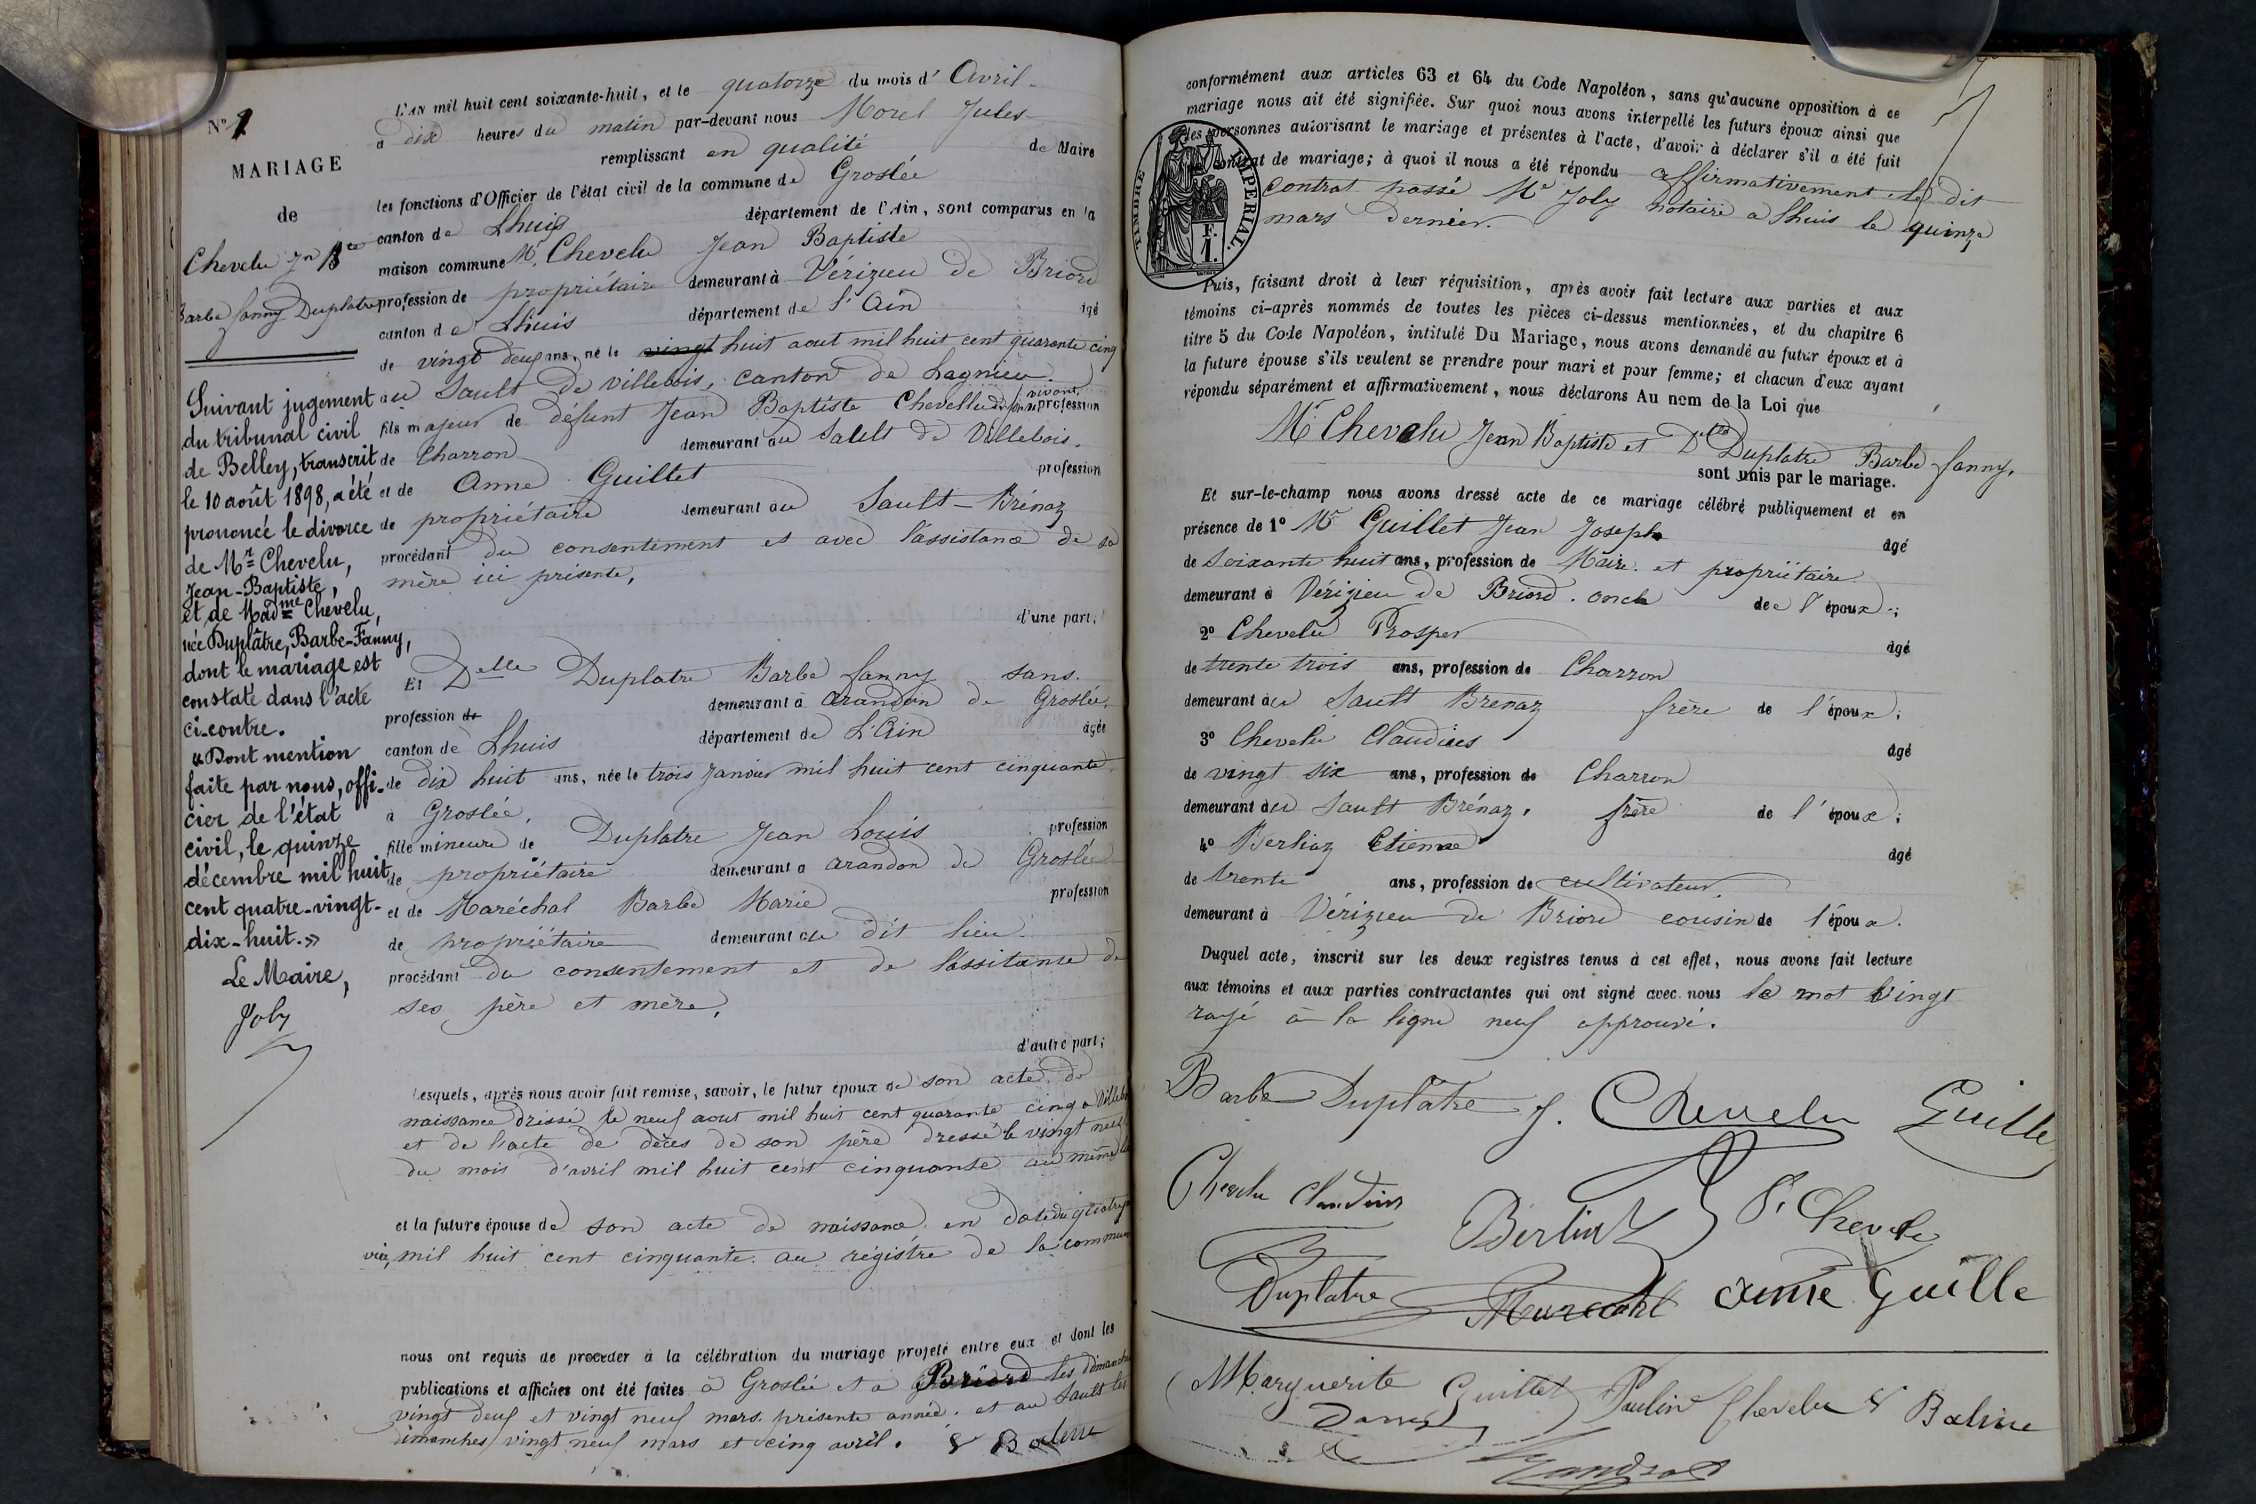 N° 1
MARIAGE
de
Chevelu Jn Bte
Barbe fanny Duplatre
Suivant jugement
du tribunal civil
de Belley, transcrit
le 10 août 1898, a été
prononcé le divorce
de Mr Chevelu,
Jean-Baptiste,
et de Madme Chevelu,
née Duplâtre, Barbe-Fanny,
dont le mariage est
constaté dans l'acte
ci-contre.
« Dont mention
faite par nous, offi-
cier de l'état
civil, le quinze
décembre mil huit
cent quatre-vingt-
dix-huit. »
Le Maire,
Joly
L'AN mil huit cent soixante-huit, et le quatorze du mois d'Avril
à dix heures du matin par-devant nous Morel Jules
remplissant en qualité de Maire
les fonctions d'Officier de l'état civil de la commune de Groslée
canton de Lhuis département de l'Ain, sont comparus en la
maison commune Mr Chevelu Jean Baptiste
profession de propriétaire demeurant à Vérizieu de Briord
canton de Lhuis département de l'Ain âgé
de vingt deux ans, né le vingt huit aout mil huit cent quarante cinq
au Sault de villebois, canton de Lagnieu.
fils majeur de défunt Jean Baptiste Chevellu de son vivant, profession
de Charron demeurant au Sault de Villebois.
et de Anne Guillet profession
de propriétaire demeurant au Sault-Brénaz
procédant du consentement et avec l'assistance de sa
mère ici présente,
d'une part;
Et Delle Duplatre Barbe fanny sans
profession de demeurant à arandon de Groslée,
canton de Lhuis département de L'Ain âgée
de dix huit ans, née le trois janvier mil huit cent cinquante
à Groslée,
fille mineure de Duplatre Jean Louis profession
de propriétaire demeurant à arandon de Groslée
et de Maréchal Barbe Marie profession
de propriétaire demeurant au dit lieu
procédant du consentement et de l'assitance de
ses père et mère,
d'autre part;
Lesquels, après nous avoir fait remise, savoir, le futur époux de son acte de
naissance dressé le neuf aout mil huit cent quarante cinq a
et de l'acte de décès de son père dressé le vingt neuf
du mois d'avril mil huit cent cinquante au même
et la future épouse de son acte de naissance en date du
mil huit cent cinquante au régistre de la
nous ont requis de procéder à la célébration du mariage projeté entre eux et dont les
publications et affiches ont été faites à Groslée et a Briord les
vingt deux et vingt neuf mars présente année. et au Sault les
dimanches vingt neuf mars et cinq avril.
conformément aux articles 63 et 64 du Code Napoléon, sans qu'aucune opposition à ce
mariage nous ait été signifiée. Sur quoi nous avons interpellé les futurs époux ainsi que
les personnes autorisant le mariage et présentes à l'acte, d'avoir à déclarer s'il a été fait
contrat de mariage; à quoi il nous a été répondu affirmativement le dit
contrat passé Me Joly notaire a Lhuis le quinze
mars dernier.
TIMBRE IMPERIAL.
F.
1.
Puis, faisant droit à leur réquisition, après avoir fait lecture aux parties et aux
témoins ci-après nommés de toutes les pièces ci-dessus mentionnées, et du chapitre 6
titre 5 du Code Napoléon, intitulé Du Mariage, nous avons demandé au futur époux et à
la future épouse s'ils veulent se prendre pour mari et pour femme; et chacun d'eux ayant
répondu séparément et affirmativement, nous déclarons Au nom de la Loi que
Mr Chevelu Jean Baptiste et Delle Duplatre Barbe fanny,
sont unis par le mariage.
Et sur-le-champ nous avons dressé acte de ce mariage célébré publiquement et en
présence de 1° Mr Guillet Jean Joseph âgé
de Soixante huit ans, profession de Maire et propriétaire
demeurant à Vérizieu de Briord. oncle de l'époux;
2° Chevelu Prosper âgé
de trente trois ans, profession de Charron
demeurant au Sault Brenaz frère de l'époux;
3° Chevelu Claudius âgé
de vingt six ans, profession de Charron
demeurant au Sault Brénaz, frère de l'époux;
4° Berliaz Etienne âgé
de trente ans, profession de cultivateur
demeurant à Vérizieu de Briord cousin de l'épou x.
Duquel acte, inscrit sur les deux registres tenus à cet effet, nous avons fait lecture
aux témoins et aux parties contractantes qui ont signé avec nous le mot vingt
rayé à la ligne neuf approuvé.
Barbe Duplatre J. Chevelu Guille
Chevelu Claudius
P. Chevelu
Duplatre Marechal anne Guille
Marguerite Guillet Pauline Chevelu